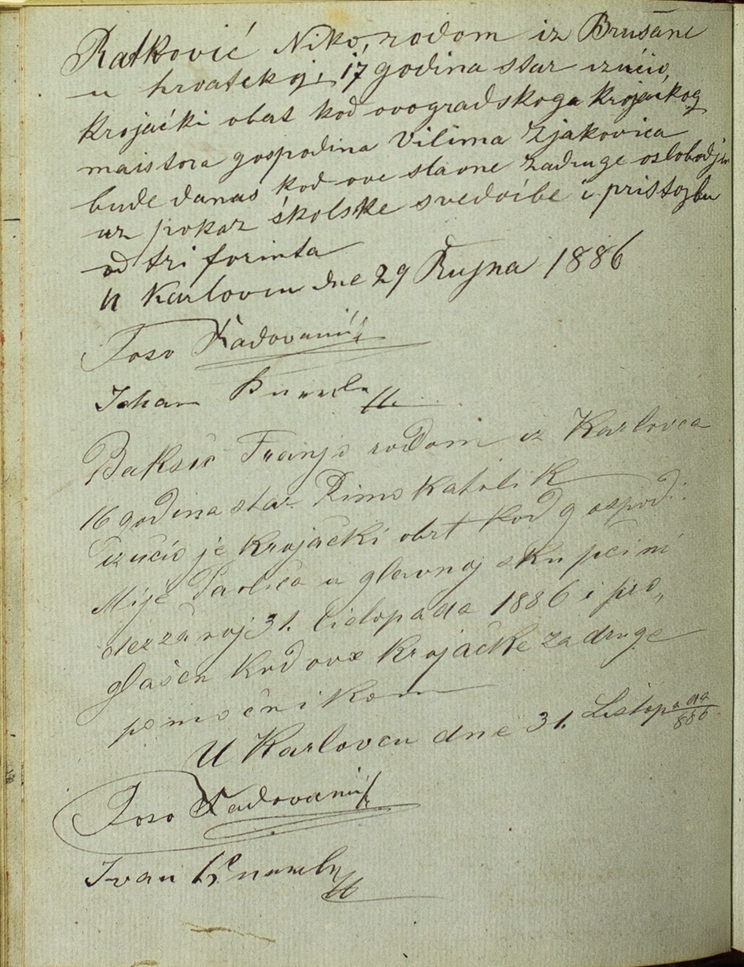 Ratković Niko, rodom iz Brušane
u hrvatskoj, 17 godina star izučio,
krojački obat kod ovogradskoga krojačkog
maistora gospodina Vilima Zjakovica
bude danas kod ove slavne zadruge oslobodjen
uz pokaz školske svedočbe i pristojbu
od tri forinta
U Karlovcu dne 29 Rujna 1886
Toso Radovanić
Johan
Bakšić Franjo rodom iz Karlovca
16 godina star Rimo Katolik
izučio je krojački obrt kod gospod.
Mije Pavlića u glavnoj skupčini
31. listopada 1886 i pro„
glašen kod ove krojačke zadruge
pomoćnikom
U Karlovcu dne 31. Listopada 886
Toso Radovanić
Ivan